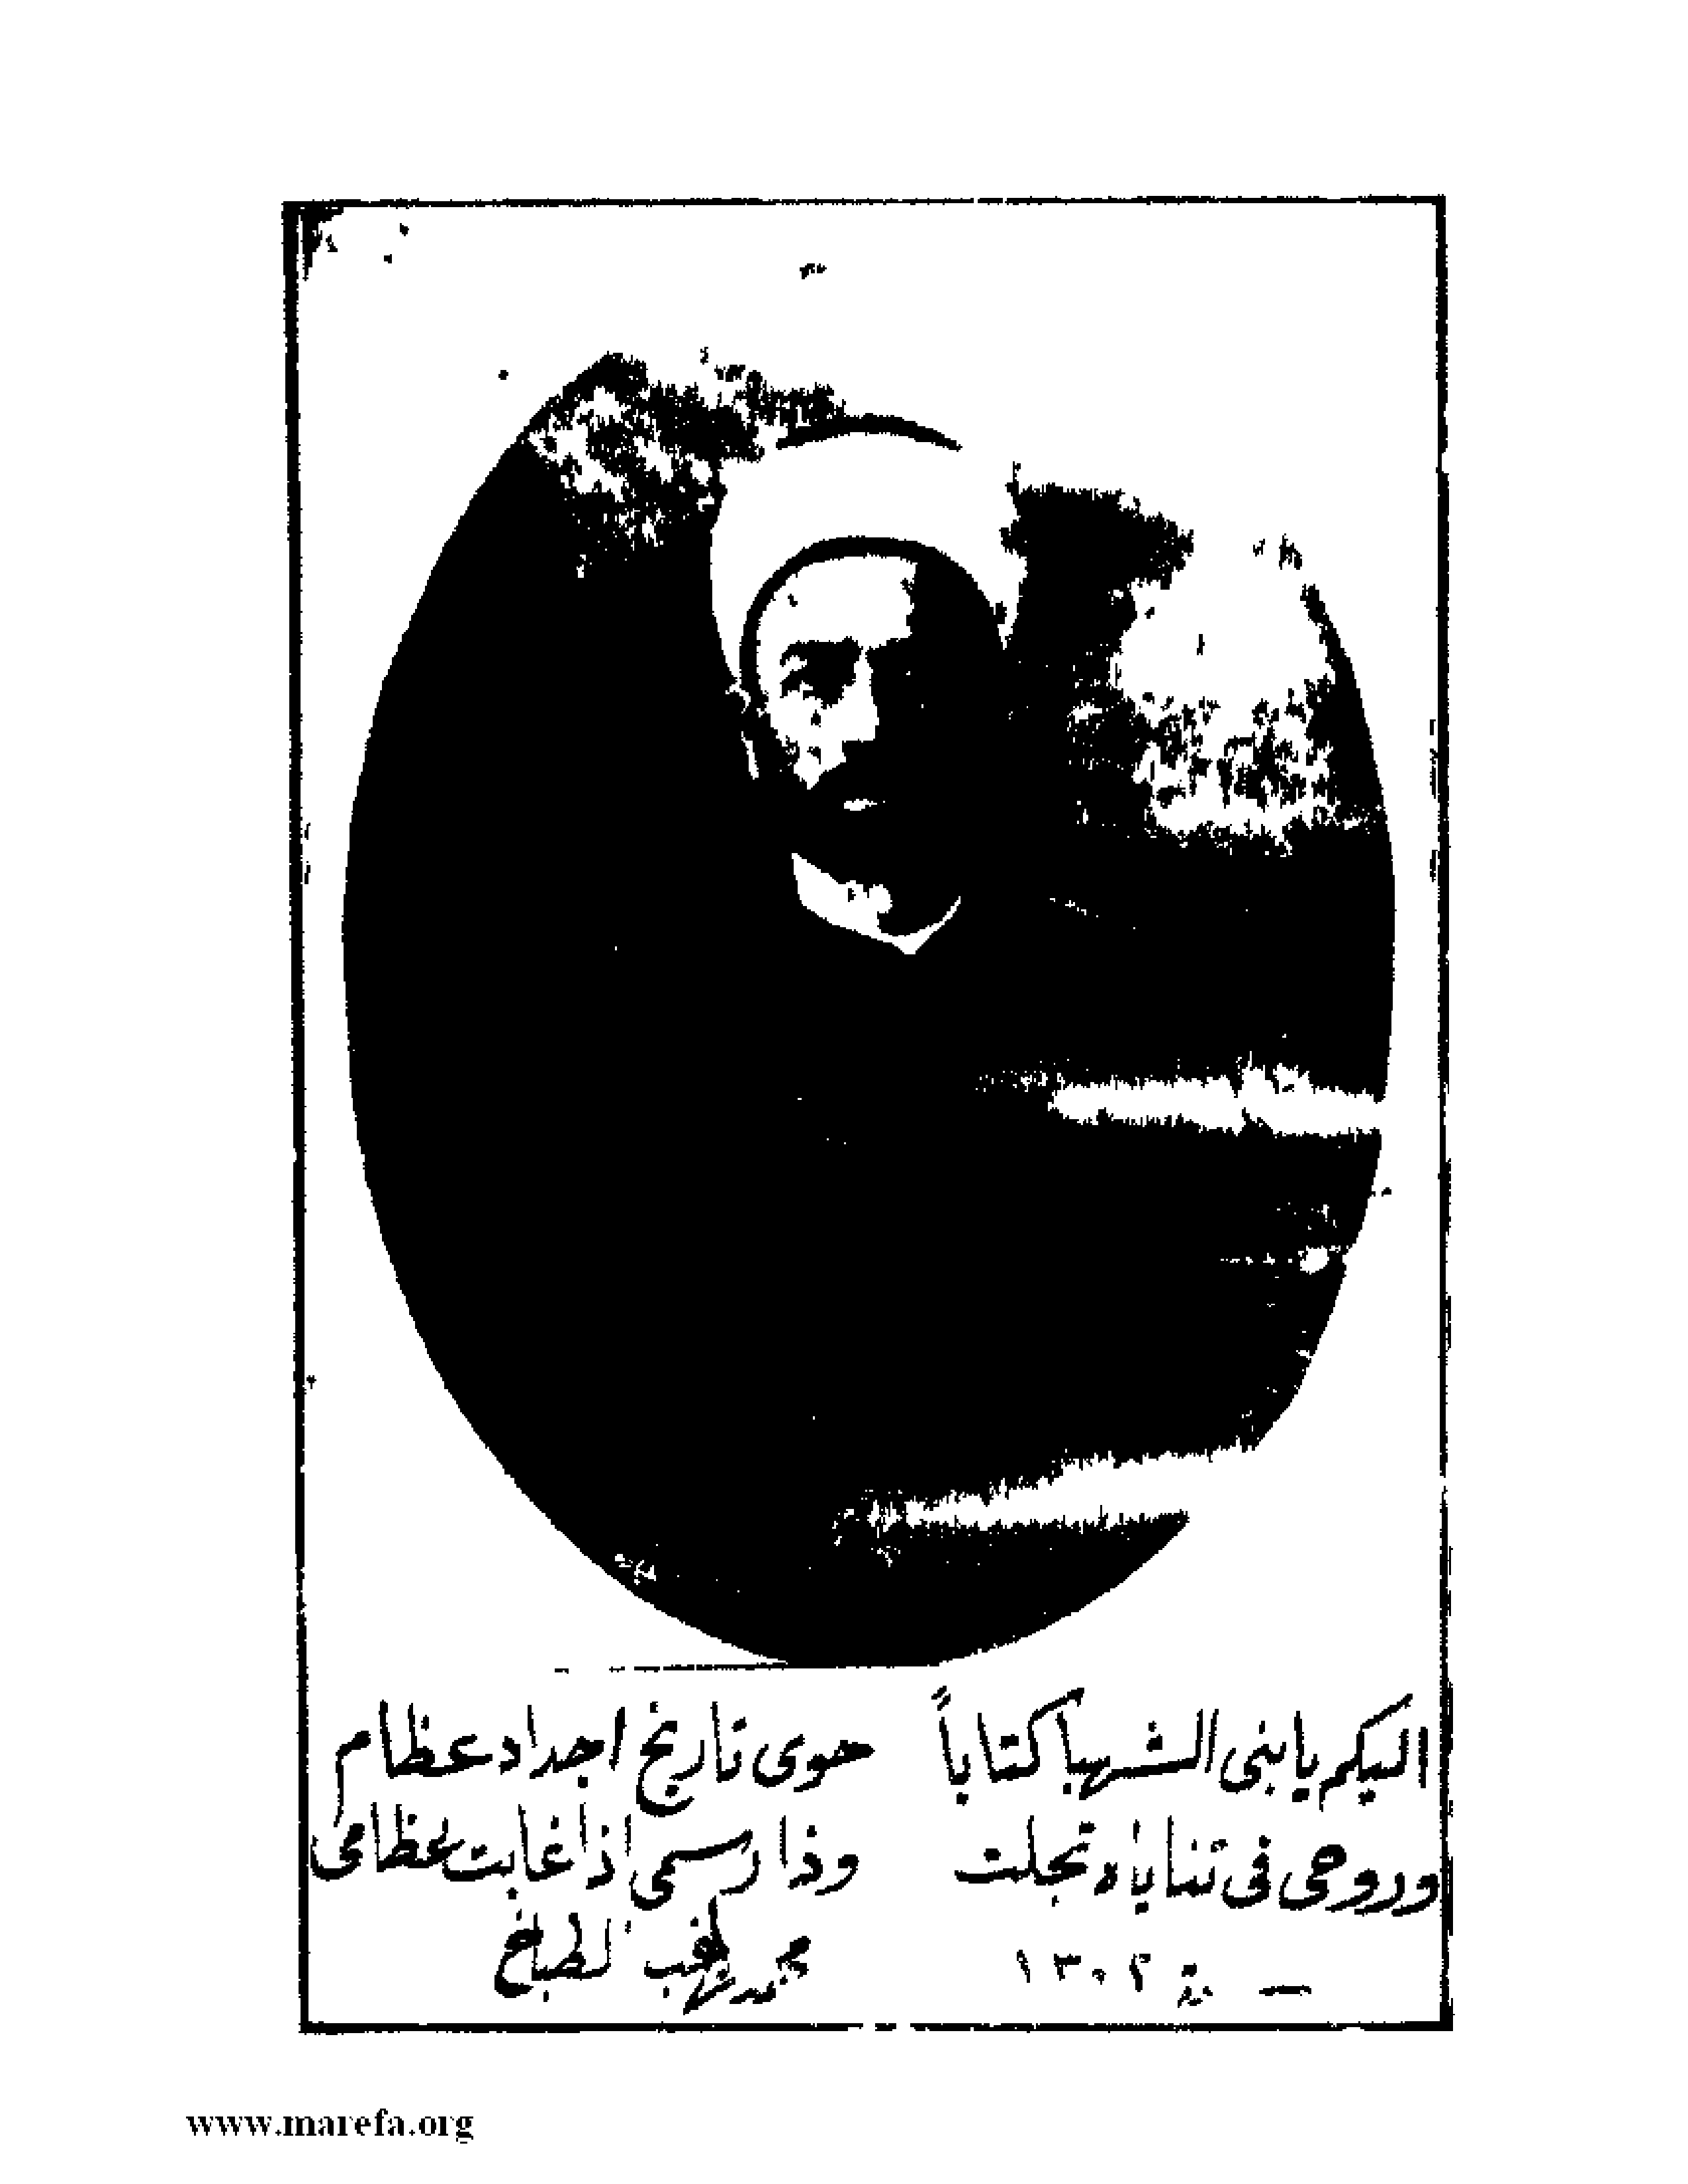 اليكم يا بنى الشهبا كتاباً حوى تاريخ اجداد عظام
وروحى فى ثناياه تجلت وذا رسمى اذا غابت عظامى
سنة ١٣٠٢ محمد راغب الطباخ
www.marefa.org